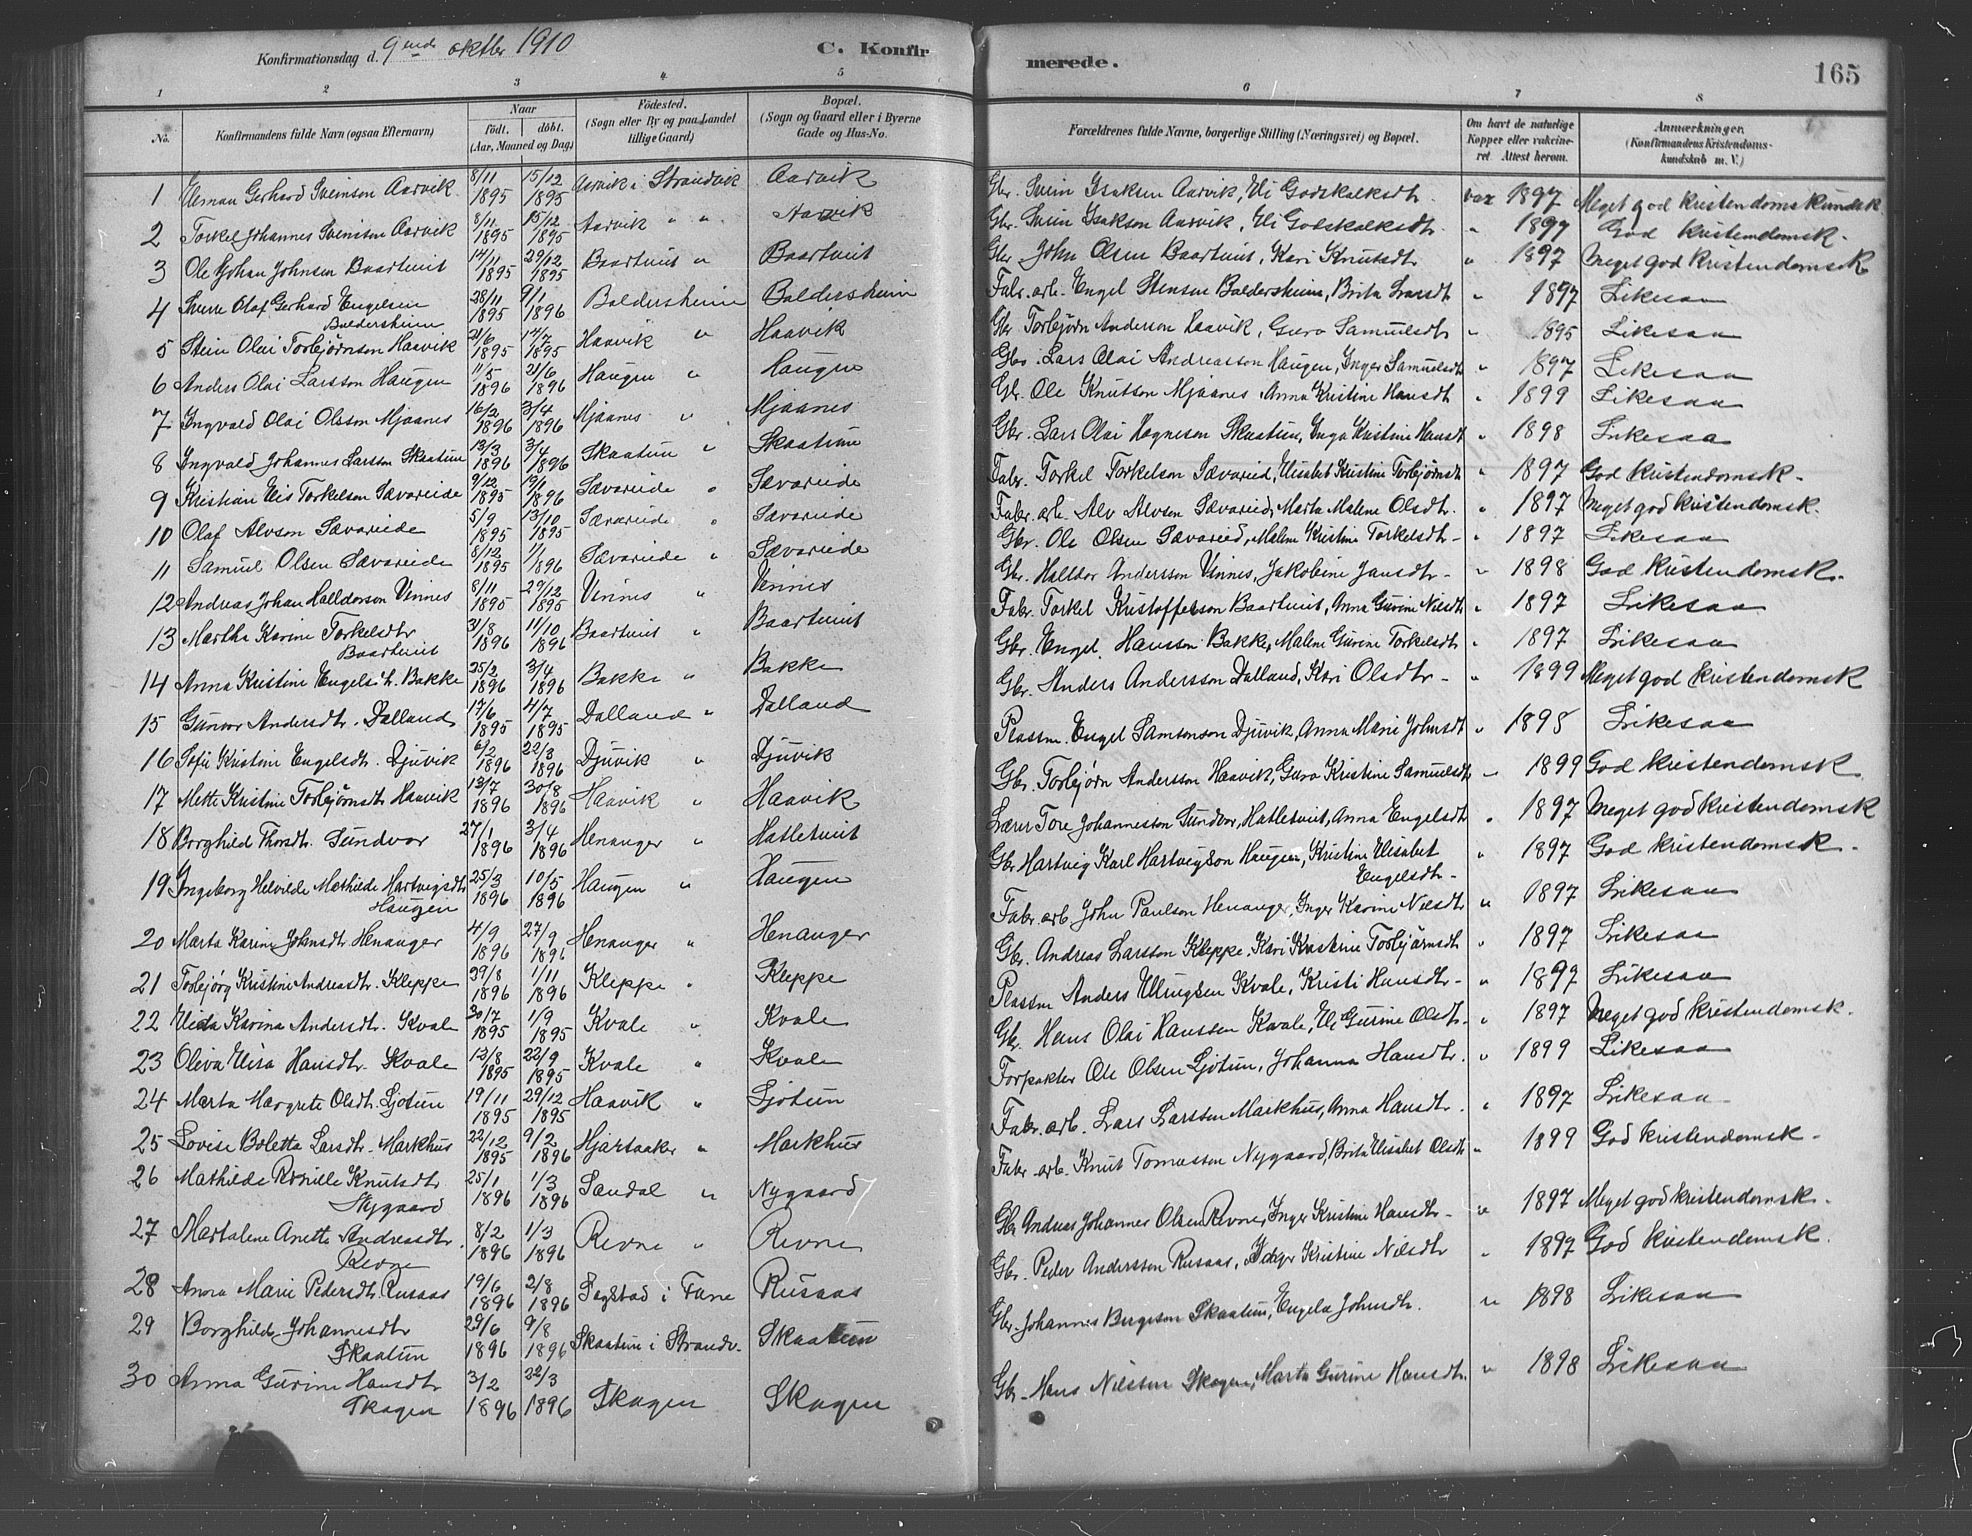 Konfirmationsdag d. 9ende oktbr 1910 C. Konfirmerede. 165
1 2 3 4 5 6 7 8
No. Konfirmandens fulde Navn (ogsaa Efternavn) Naar födt. döbt. (Aar, Maaned og Dag) Födested. (Sogn eller By og paa Landet tillige Gaard) Bopæl. (Sogn og Gaard eller i Byerne Gade og Hus-No. Forældrenes fulde Navne, borgerlige Stilling (Næringsvei) og Bopæl. Om havt de naturlige Kopper eller vakcineret Attest herom. Anmærkninger. (Konfirmandens Kristendomskundskab m. V.)
1 Herman Gerhard Sveinson Aarvik 8/11 1895 15/12 1895 Aarvik i Strandvik Aarvik Gbr. Svein Isaksen Aarvik, Eli Godskalksdt. vac 1897 Meget god Kristendomskundsk.
2 Torkel Johannes Sveinson Aarvik 8/11 1895 15/12 1895 Aarvik " " Aarvik Gbr. Svein Isakson Aarvik, Eli Godskalksdt. " 1897 God Kristendomsk.
3 Ole Johan Johnsen Baartveit 14/11 1895 29/12 1895 Baartveit " Baartveit Gbr. John Olsen Baartveit, Kari Knutsdt " 1897 Meget god Kristendomsk
4 Sverre Olaf Gerhard Engelsen Baldersheim 28/11 1895 9/1 1896 Baldersheim Baldersheim Fabr. arb. Engel Stenson Baldersheim, Brita Larsdt " 1897 Likesaa
5 Stein Olai Torbjørnson Haavik 21/6 1895 14/7 1895 Haavik " Haavik Gbr Torbjørn Anderson Haavik, Guro Samuelsdt " 1895 Likesaa
6 Anders Olai Larsson Haugen 11/5 1896 21/6 1896 Haugen " Haugen Gbr. Lars Olai Andreasson Haugen, Inger Samuelsdt " 1897 Likesaa
7 Ingvald Olai Olsson Mjaanes 16/2 1896 3/4 1896 Mjaanes " Mjaanes Gbr. Ole Knutson Mjaanes Anna Kristine Hansdt " 1899 Likesaa
8 Ingvald Johannes Larsson Skaatun 13/3 1896 3/4 1896 Skaatun " Skaatun Gbr. Lars Olai Hagneson Skaatun, Inga Kristine Hansdt " 1898 Likesaa
9 Kristian Elis Torkelson Sævareide 9/12 1895 19/1 1896 Sævareide " Sævareide Fabr. Torkel Torkelson Sævareid, Elisabet Kristine Torbjørnsdt " 1897 God Kristendomsk.
10 Olaf Alvson Sævareide 5/9 1895 13/10 1895 Sævareide " Sævareide Fabr. arb. Alv Alvson Sævareid, Marta Malene Olsdt. " 1897 Meget god Kristendomsk.
11 Samuel Olsen Sævareide 8/12 1895 1/1 1896 Sævareide " Sævareide Gbr. Ole Olsen Sævareid, Malene Kristine Torkelsdt. " 1897 Likesaa
12 Andreas Johan Halldorson Vinnes 8/11 1895 29/12 1895 Vinnes " Vinnes Gbr. Halldor Andersson Vinnes, Jakobine Jansdt. " 1898 God Kristendomsk.
13 Martha Karine Torkelsdtr Baartveit 31/8 1896 11/10 1896 Baartveit " Baartveit Fabr. Torkel Kristofferson Baartveit, Anna Gurine Nilsdt " 1897 Likesaa
14 Anna Kristine Engelsdt. Bakke 25/2 1896 3/4 1896 Bakke " Bakke Gbr. Engel Hansson Bakke, Malene Gurine Torkelsdt. " 1897 Likesaa
15 Gunvor Andersdt. Dalland 17/6 1895 4/7 1895 Dalland " Dalland Gbr. Anders Andersson Dalland, Kari Olsdtr. " 1899 Meget god Kristendomsk
16 Sofie Kristine Engelsdt. Djuvik 6/2 1896 22/3 1896 Djuvik " Djuvik Plassm. Engel Samsonson Djuvik, Anna Marie Johnsdt " 1898 Likesaa
17 Mette Kristine Torbjørnsdt Haavik 13/7 1896 30/8 1896 Haavik " Haavik Gbr. Torbjørn Andersson Haavik, Guro Kristine Samuelsdt " 1899 God Kristendomsk
18 Borghild Thorsdt. Sundvor 27/1 1896 3/4 1896 Henanger " Hatletveit Lærer Tore Johannesson Sundvor, Hatletveit, Anna Engelsdt " 1897 Meget god Kristendomsk
19 Ingeborg Helvilde Mathilde Hartvigsdt Haugen 25/3 1896 10/5 1896 Haugen " Haugen Gbr Hartvig Karl Hartvigson Haugen, Kristine Elisabet Engelsdt. " 1897 God Kristendomsk.
20 Marta Karine Johnsdt Henanger 4/9 1896 27/9 1896 Henanger " Henanger Fabr. arb. John Paulson Henanger, Inger Karine Nilsdt " 1897 Likesaa
21 Torbjørg Kristine Andreasdt. Kleppe 29/8 1896 1/11 1896 Kleppe " Kleppe Gbr. Andreas Larsson Kleppe, Kari Kristine Torbjørnsdt " 1897 Likesaa
22 Karina Andersdt. Kvale 30/7 1895 1/9 1895 Kvale " Kvale Plassm Anders Ellingsen Kvale, Kristi Hansdt. " 1897 Likesaa
23 Oliva Elisa Hansdt. Kvale 13/8 1895 22/9 1895 Kvale " Kvale Gbr. Hans Olai Hansson Kvale, Eli Gurine Olsdt. " 1897 Meget god Kristendomsk.
24 Marta Margrete Olsdt. Ljotun 19/11 1895 29/12 1895 Haavik " Ljotun Forpakter Ole Olsen Ljotun, Johanna Hansdt. " 1899 Likesaa
25 Lovise Boletta Larsdt. Markhus 22/12 1895 9/2 1896 Hjartaaker " Markhus Fabr. arb. Lars Larsson Markhus, Anna Hansdt. " 1897 Likesaa
26 Mathilde Rosille Knutsdtr Nygaard 25/1 1896 1/3 1896 Sandal " Nygaard Fabr. arb. Knut Tomasson Nygaard, Brita Elisabet Olsdt " 1899 God Kristendomsk.
27 Martalene Anette Andreasdt. Revne 8/2 1896 1/3 1896 Revne " Revne Gbr Andreas Johannes Olsen Revne, Inger Kristine Hansdt. " 1897 Meget god Kristendomsk.
28 Anna Marie Pedersdt. Rusaas 19/6 1896 2/8 1896 i Fane Rusaas Gbr. Peder Andersson Rusaas, Inger Kristine Nilsdt " 1897 God Kristendomsk.
29 Borghild Johannesdtr Skaatun 29/6 1896 9/8 1896 Skaatun i Strandv. Skaatun Gbr. Johannes Skaatun, Engela Johnsdt. " 1898 Likesaa
30 Anna Gurine Hansdtr Skogen 3/2 1896 22/3 1896 Skogen Skogen Gbr. Hans Nilsson Skogen, Marta Gurine Hansdt. " 1898 Likesaa